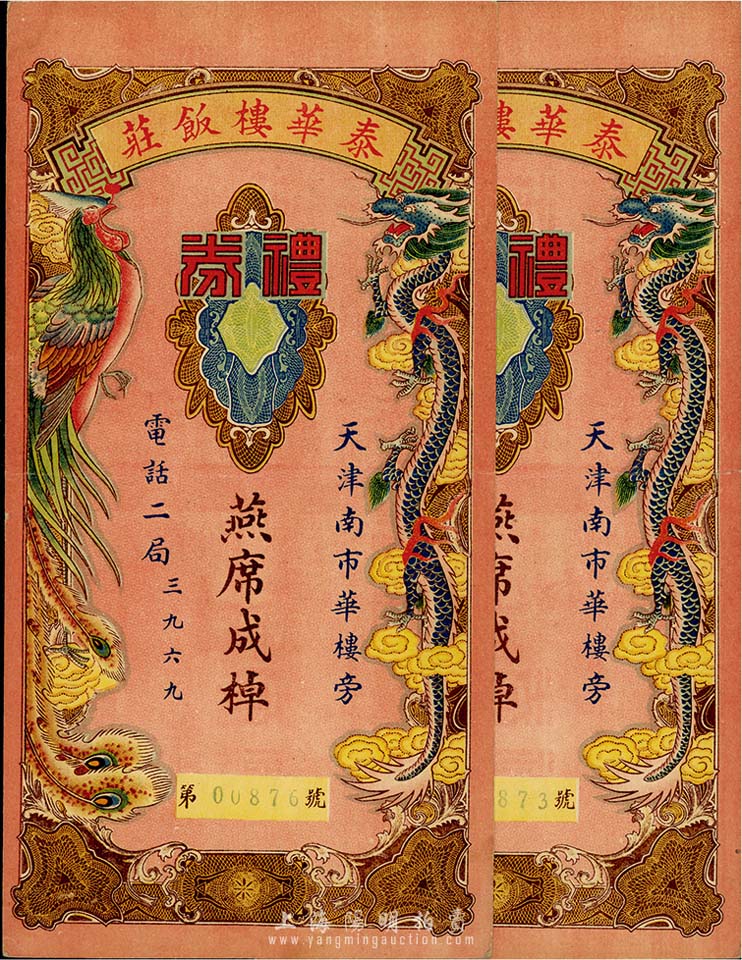 泰華樓飯莊
禮券
天津南市華樓旁
燕席成棹
電話二局三九六九
第00876號
泰華樓
禮
天津南市華樓旁
燕席成棹
873號
上海陽明拍賣
www.yangmingauction.com